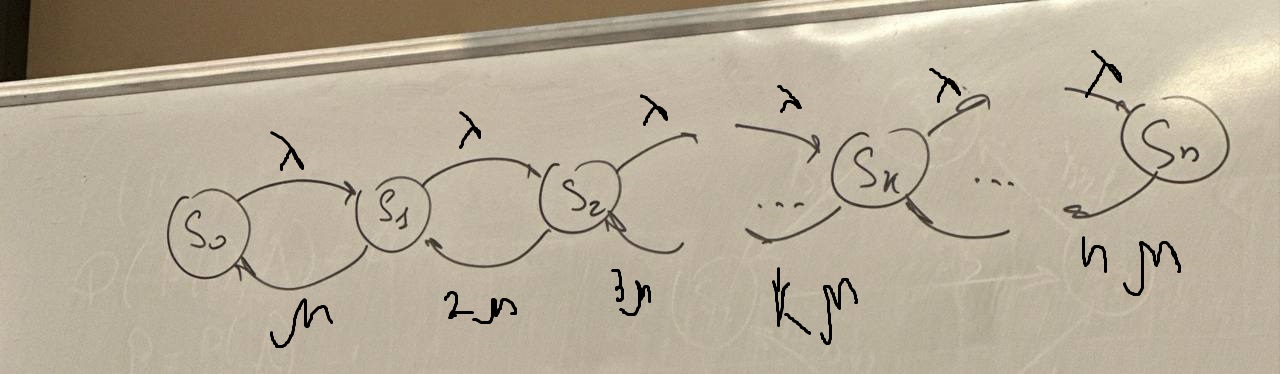 λ λ λ λ λ λ
S₀ S₁ S₂ ... Sₖ ... Sₙ
μ 2μ 3μ kμ nμ